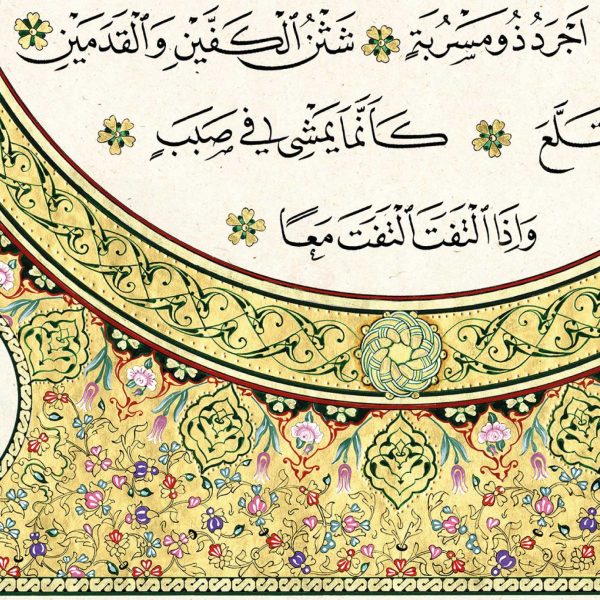 اَجْرَدُ ذُو مَسْرُبَةٍ شَثْنُ الْكَفَّيْنِ وَالْقَدَمَيْنِ
كَاَنَّمَا يَمْشِى فِي صَبَبٍ
وَاِذَا الْتَفَتَ الْتَفَتَ مَعًا